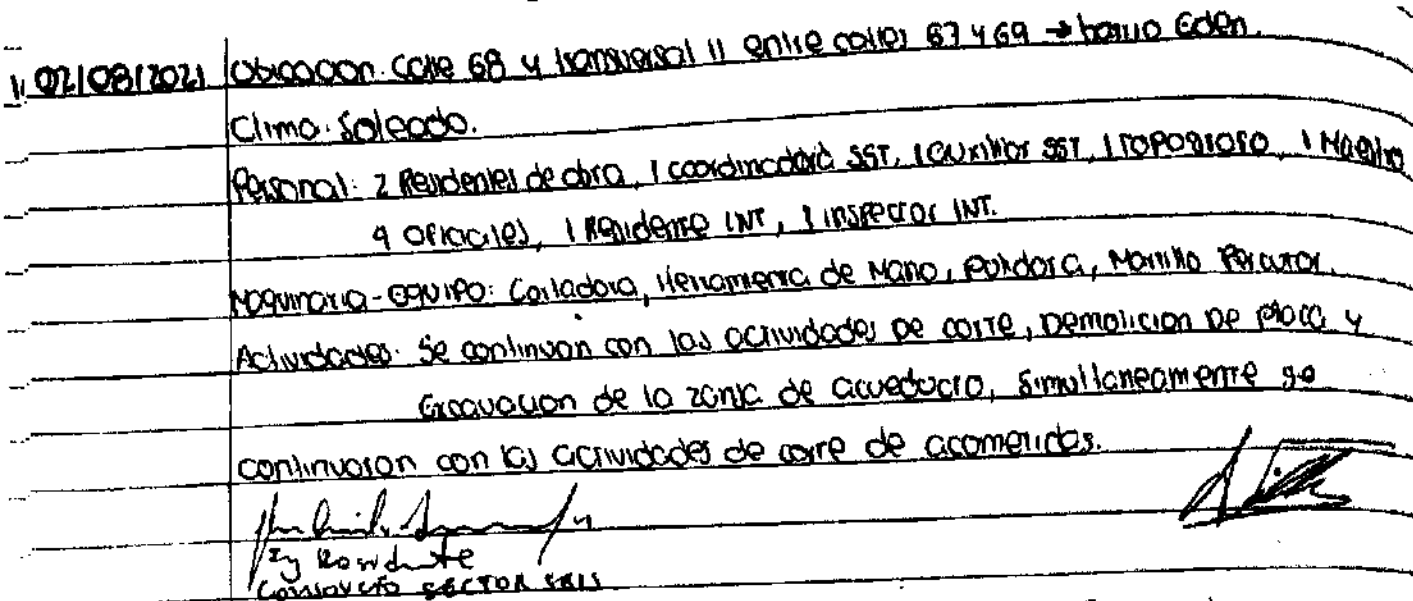 02/08/2021 Ubicacion. Calle 68 y transversal 11 entre calles 67 y 69 → barrio Eden.
Clima: Soleado.
Personal: 2 Residentes de obra, 1 coordinadora SST, 1 auxiliar SST, 1 Topografo, 1 Maestro
4 oficiales, 1 Residente INT, 1 inspector INT.
Maquinaria-equipo: Cortadora, Herramienta de Mano, Pulidora, Martillo Percutor.
Actividades: Se continuan con las actividades de corte, Demolicion de placa y
Excavacion de la zanja de acueducto, simultaneamente se
continuaron con las actividades de corte de acometidas.
Ing Residente
Consorcio SECTOR